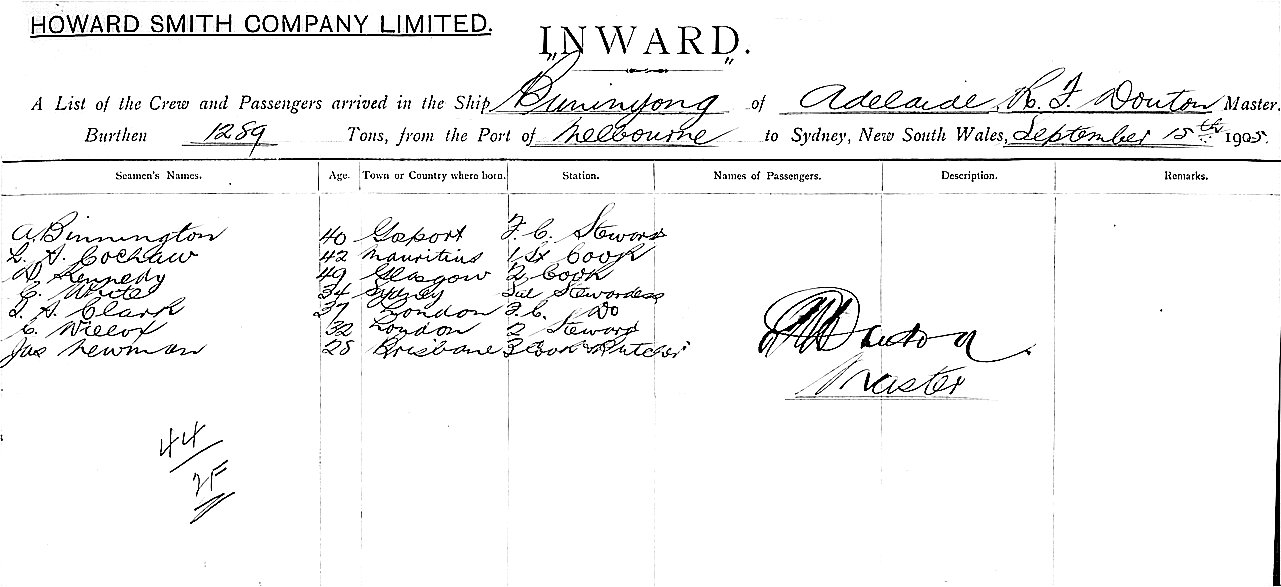 HOWARD SMITH COMPANY LIMITED.
INWARD.
A List of the Crew and Passengers arrived in the Ship "Buninyong" of Adelaide, R. F. Douton Master.
Burthen 1289 Tons, from the Port of Melbourne to Sydney, New South Wales, September 15th 1905.
Seamen's Names. Age. Town or Country where born. Station. Names of Passengers. Description. Remarks.
A. Binnington 40 Gosport F. C. Steward
42 Mauritius 1st Cook
D. Kennedy 49 Glasgow 2 Cook
E. White 34 Sydney Sal Stewardess
Clark 37 London F. C. Do
C. Willcox 32 London 2 Steward
Jas Newman 28 Brisbane 3 Cook & Butcher
R F Douton
Master
44
2F